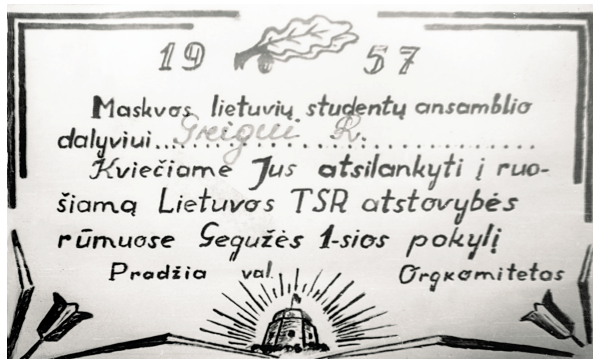 19 57
Maskvos lietuvių studentų ansamblio
dalyviui.... R.
Kviečiame Jus atsilankyti į ruo-
šiamą Lietuvos TSR atstovybės
rūmuose Gegužės 1-sios pokylį
Pradžia val. Orgkomitetas